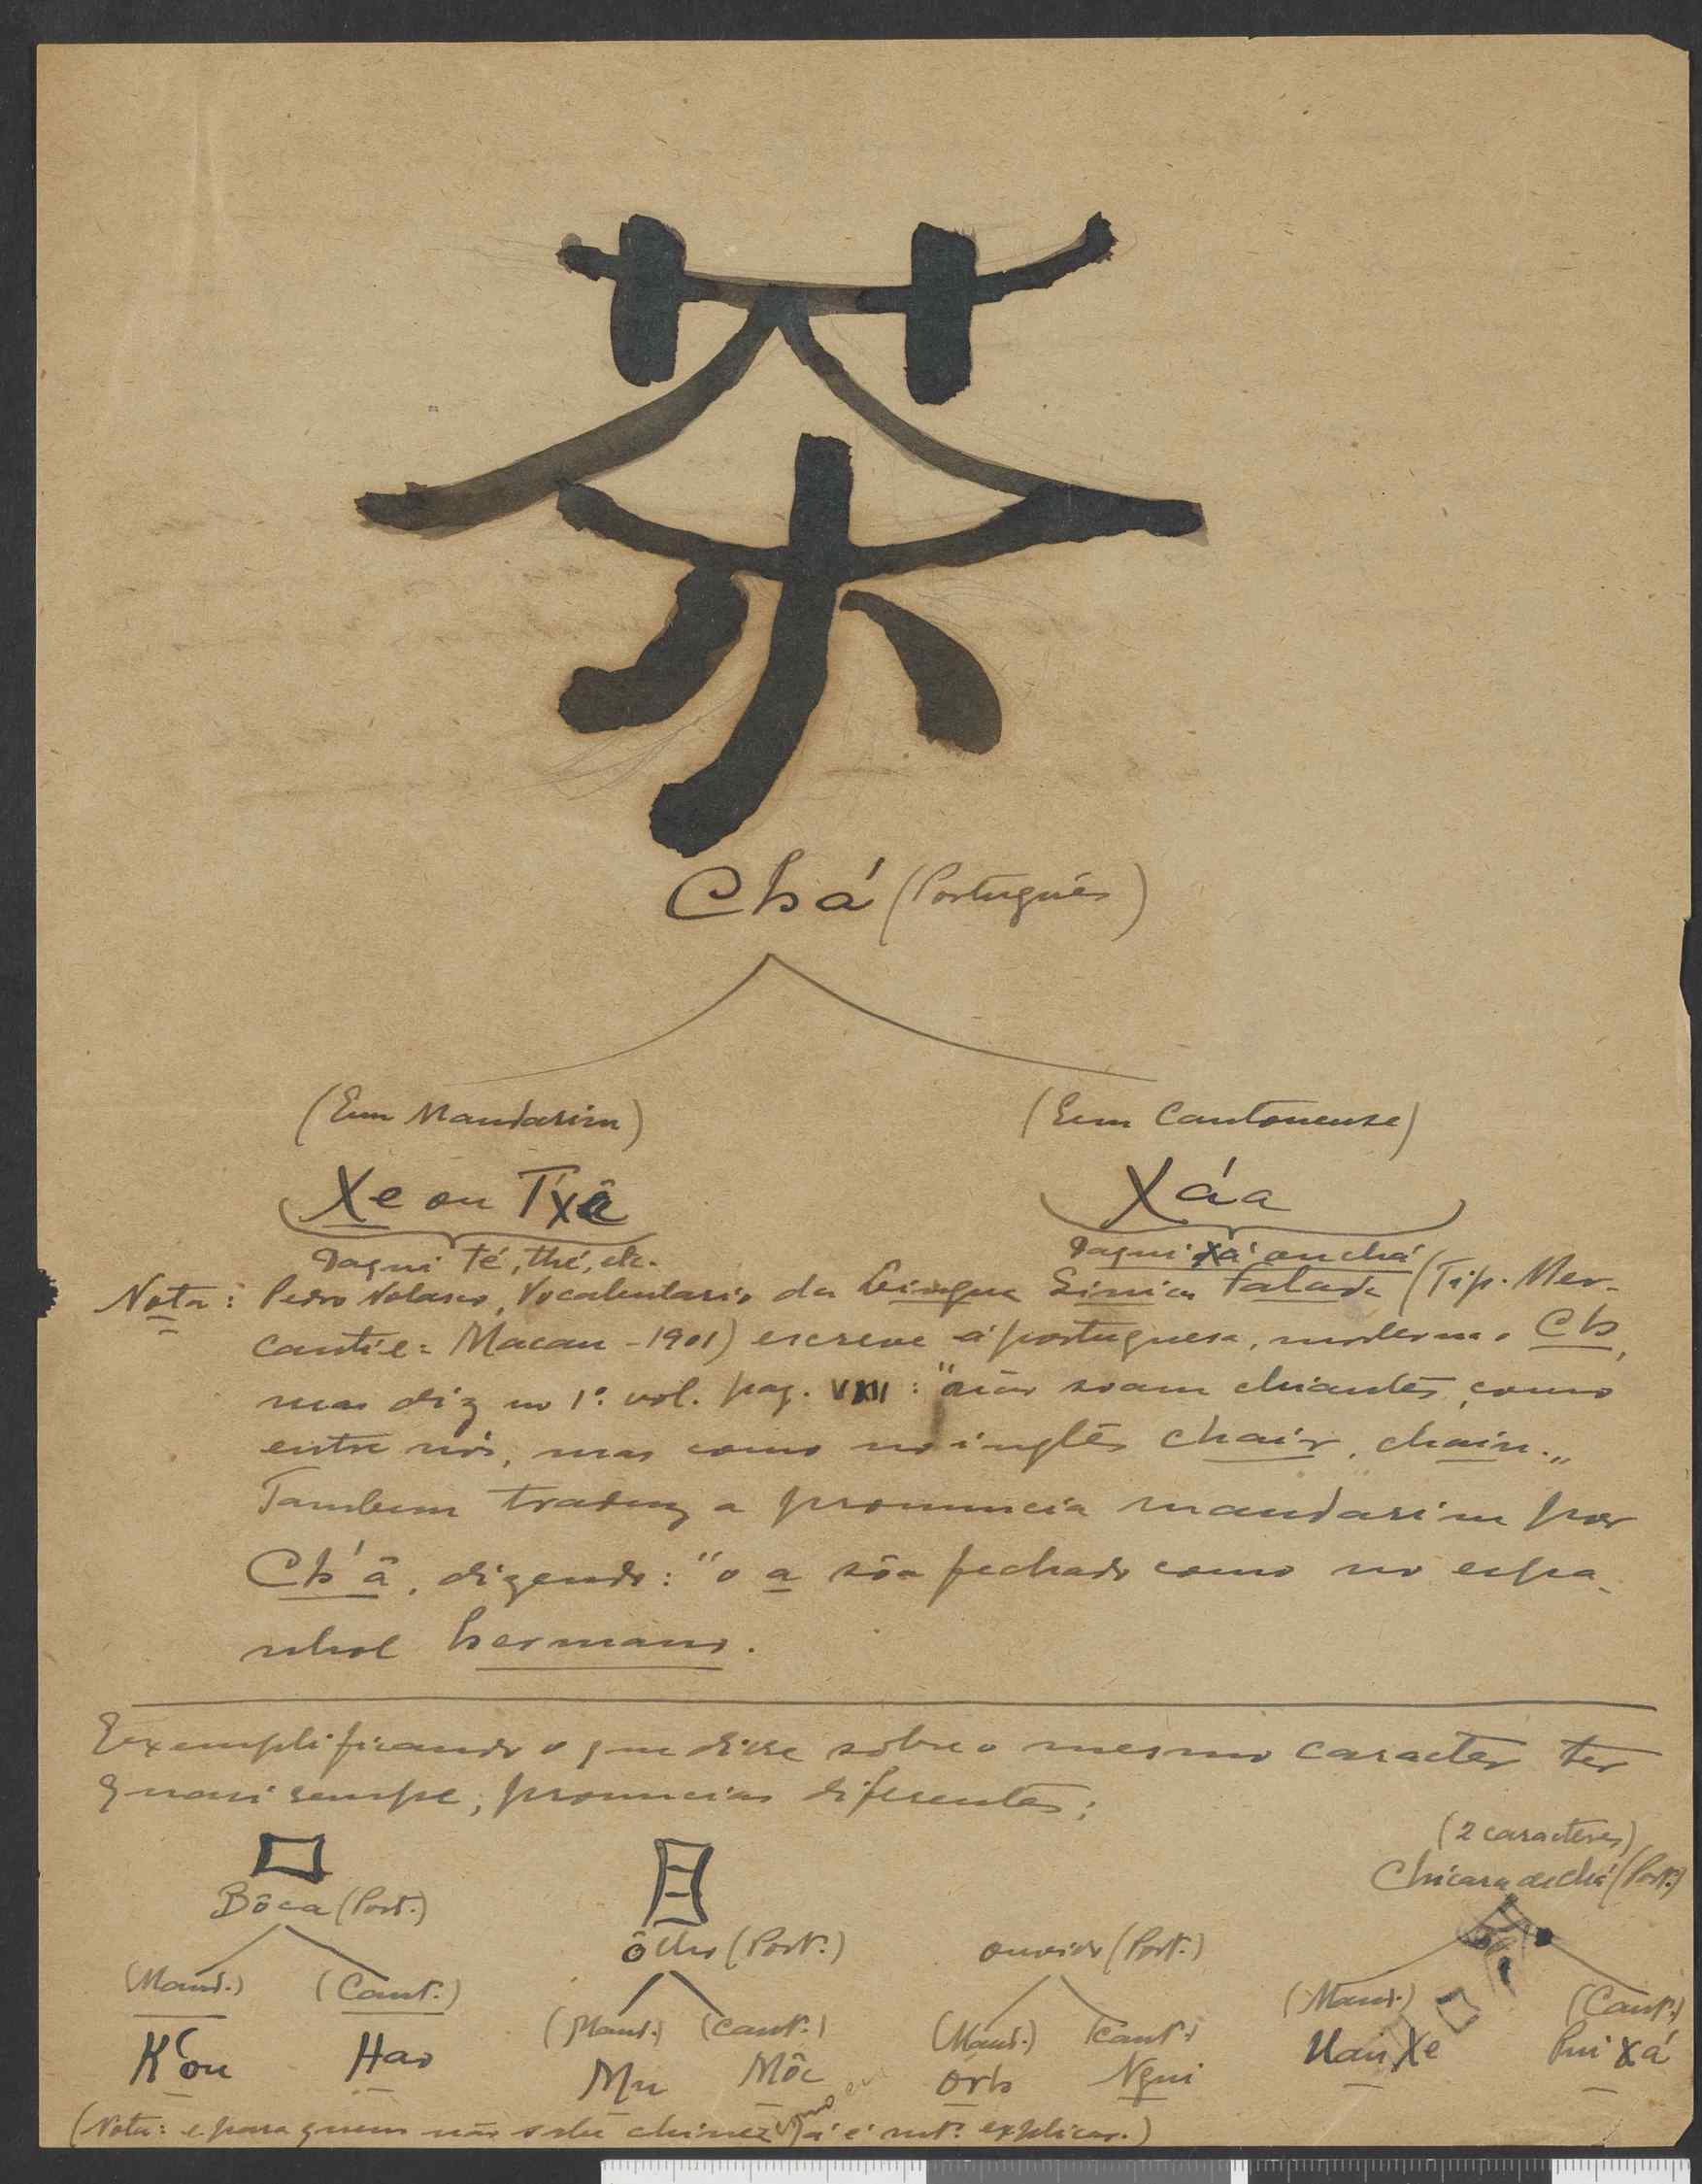 茶
Chá (Português)
(Em Mandarim) (Em Cantonense)
Xe ou Txê Xáa
Daqui té, thé, etc. Daqui xá ou chá
Nota: Pedro Nolasco, Vocabulario da Lingua Sinica falada (Tip. Mer-
cantil = Macau - 1901) escreve á portuguesa, moderna o Ch,
mas diz no 1º vol. pag. VXII: "não soam chiantes, como
entre nós, mas como no inglês chair, chain.„
Tambem traduz a pronuncia mandarim por
Ch'â, dizendo: "o a sôa fechado como no espa-
nhol hermano.
Exemplificando o que disse sôbre o mesmo caracter ter
quasi sempre, pronuncias diferentes:
(2 caracteres)
口 目 Chicara de chá (Port.)
Bôca (Port.) ôlho (Port.) ouvido (Port.)
(Mand.) (Cant.) (Mand.) (Cant.) (Mand.) (Cant.) (Mand.) (Cant.)
K'ou Hao Mu Môc Orh Ngui Uan Xe Pui Xá
(Nota: e para quem não sabe chinez já é mtº explicar.)